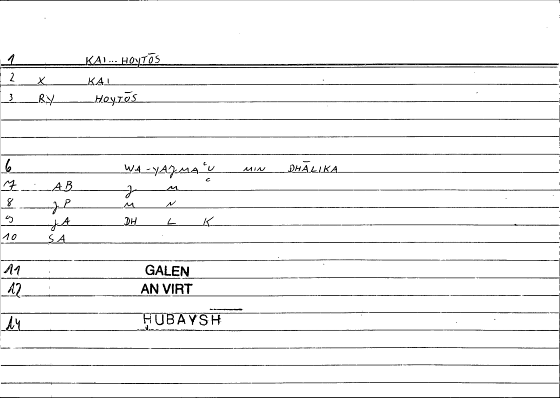 1 KAI...HOYTŌS
2 X KAI
3 RY HOYTŌS
6 WA-YAʒMAʿU MIN DHĀLIKA
7 AB ʒ M ʿ
8 ʒP M N
9 ʒA DH L K
10 SA
11 GALEN
12 AN VIRT
14 ḤUBAYSH